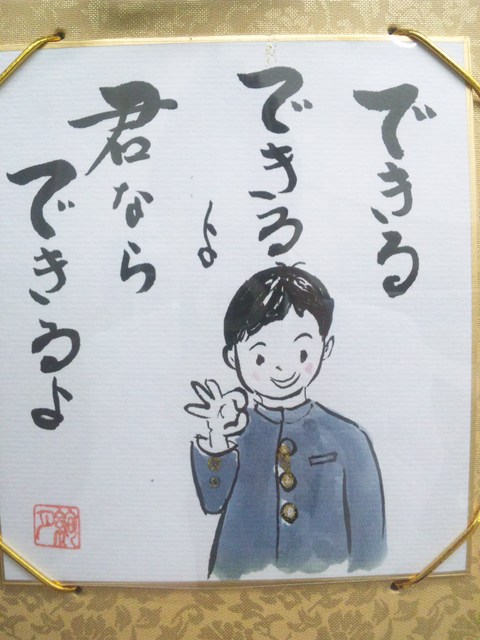 できる
できる
よ
君なら
できるよ